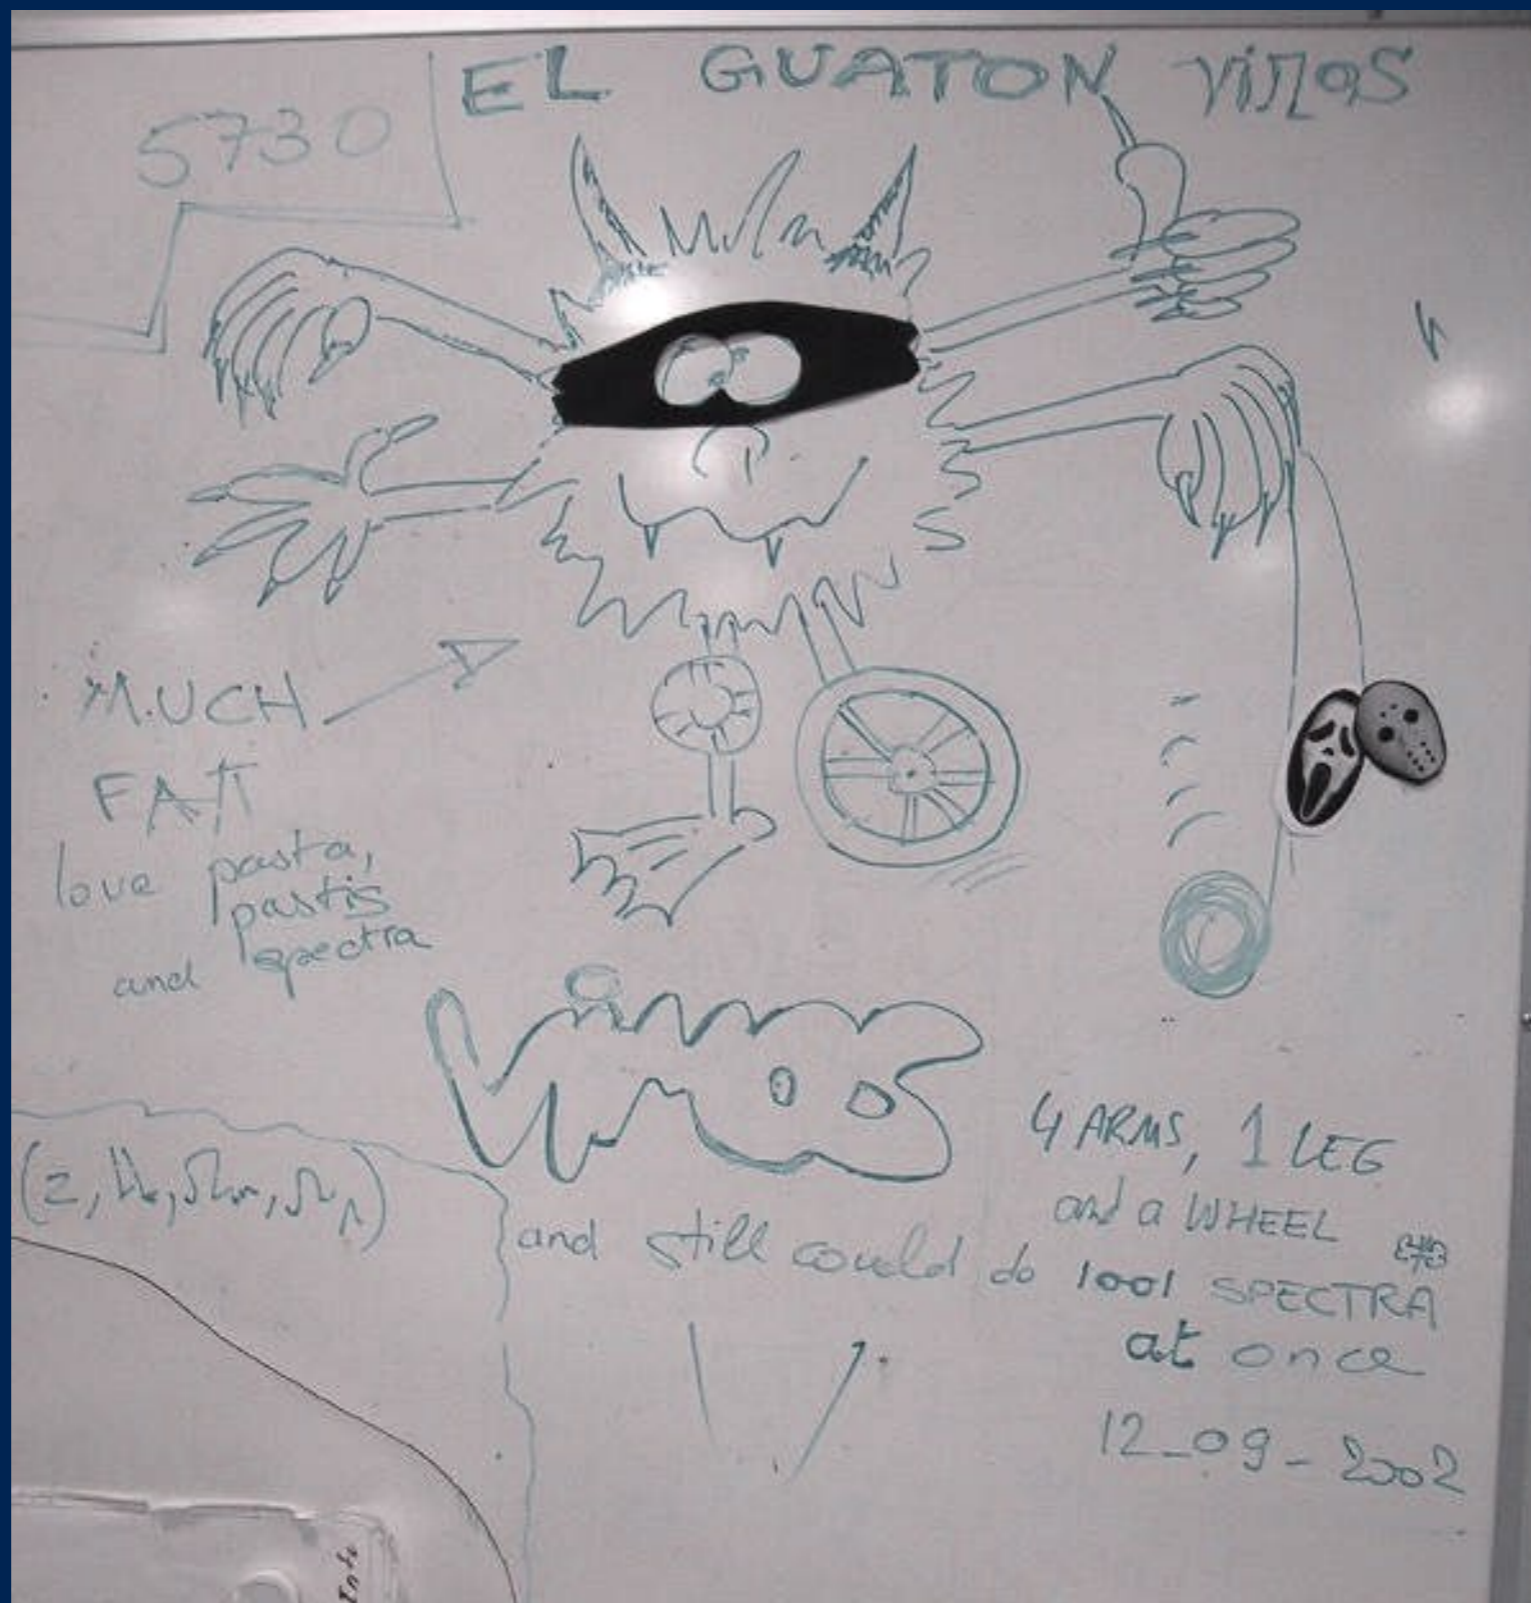 EL GUATON ViMOS
5730
M.UCH
FATT
love pasta,
pastis
and spectra
Vimos
4 ARMS, 1 LEG
and a WHEEL
and still could do 1001 SPECTRA
at once
12_09_2002